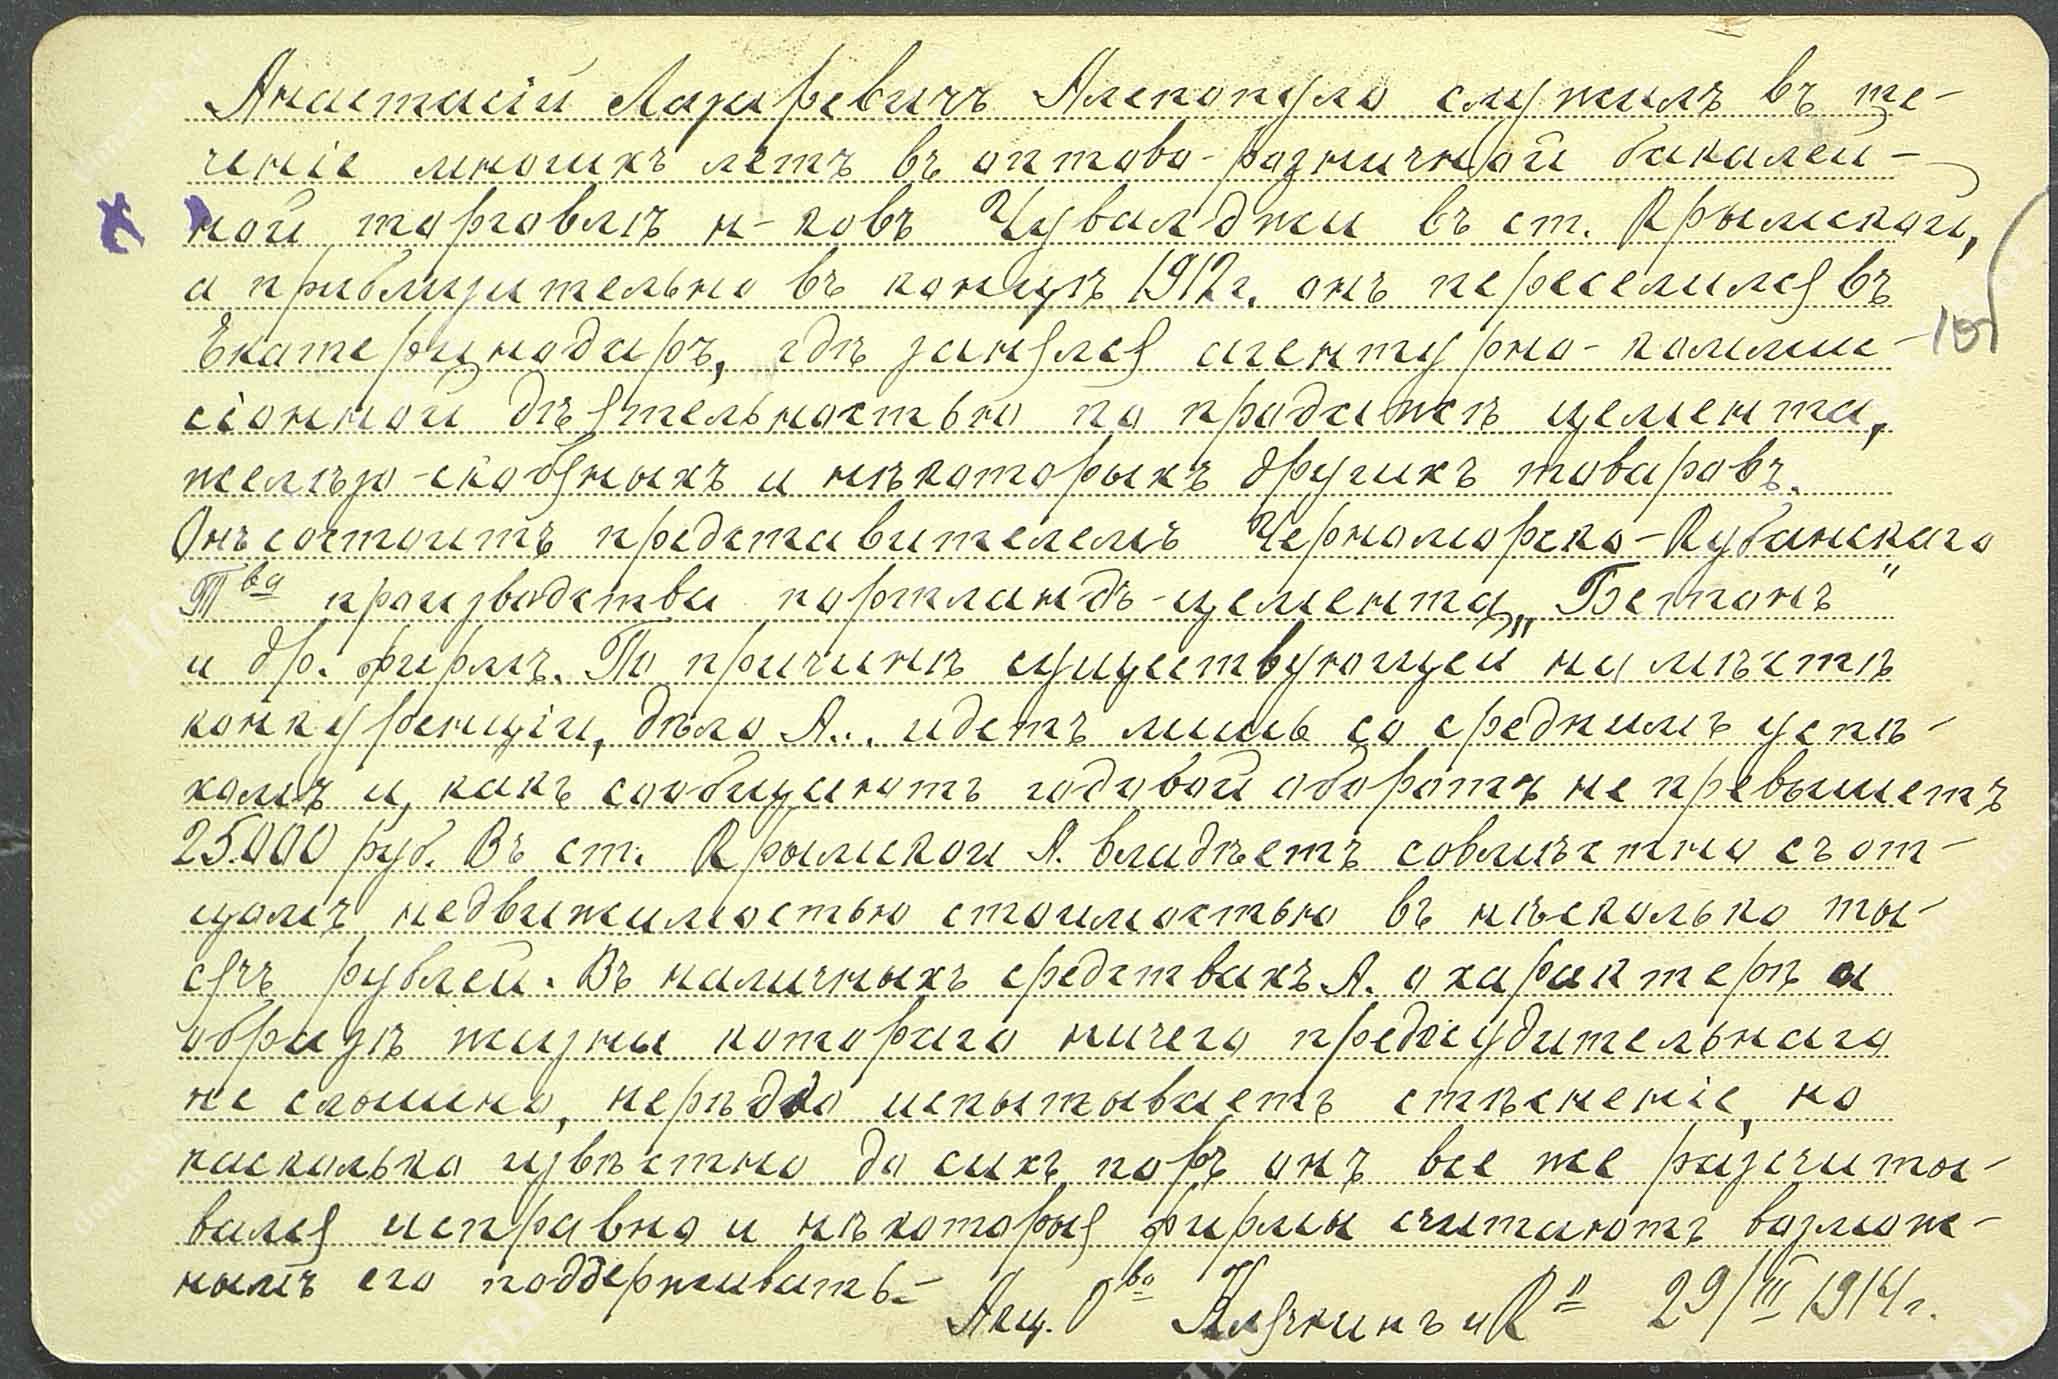 Анастасій Лазаревичъ Алепопуло служилъ въ те-
ченіе многихъ летъ въ оптово-розничной бакалей-
ной торговлѣ н-ковъ Чувалджи въ ст. Крымской,
а приблизительно въ концѣ 1912г. онъ переселился въ
Екатеринодаръ, гдѣ занялся агентурно-коммис-
сіонной дѣятельностью по продажѣ цемента,
желѣзо-скобяныхъ и нѣкоторыхъ другихъ товаровъ.
Онъ состоитъ представителемъ Черноморско-Кубанскаго
Т-ва производства портландъ-цемента „Бетонъ"
и др. фирмъ. По причинѣ существующей на мѣстѣ
конкуренціи, дѣло А... идетъ лишь со среднимъ успѣ-
хомъ и, какъ сообщаютъ годовой оборотъ не превышаетъ
25.000 руб. Въ ст. Крымской А. владѣетъ совмѣстно съ от-
цомъ недвижимостью стоимостью въ нѣсколько ты-
сячъ рублей. Въ наличныхъ средствахъ А. о характерѣ и
образѣ жизни котораго ничего предосудительнаго
не слышно, нерѣдко испытываетъ стѣсненіе, но
насколько извѣстно до сихъ поръ онъ все же разсчиты-
вался исправно и нѣкоторыя фирмы считаютъ возмож-
нымъ его поддерживать.-
Акц. О-во Клячкинъ и Ко 29/III 1914г.